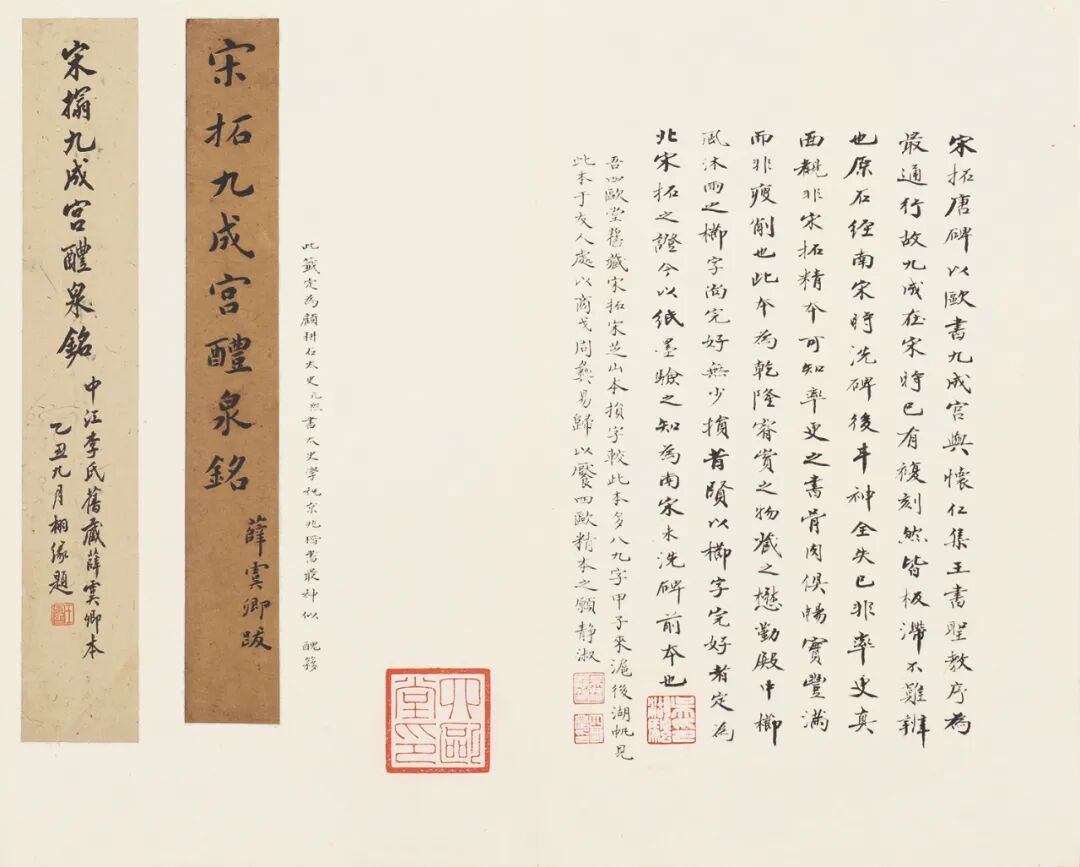 宋拓唐碑以歐書九成宮與懷仁集王書聖教序為
最通行故九成在宋時已有複刻然皆板滯不難辨
也原石經南宋時洗碑後丰神全失已非率更真
面覩非宋拓精本可知率更之書骨肉俱暢實豐滿
而非瘦削也此本為乾隆睿賞之物藏之懋勤殿中櫛
風沐雨之櫛字尚完好無少損昔賢以櫛字完好者定為
北宋拓之證今以紙墨驗之知為南宋未洗碑前本也
吾四歐堂舊藏宋拓宋芝山本損字較此本多八九字甲子來滬後湖帆見
此本于友人處以商戈周彝易歸以饜四歐精本之願靜淑
四歐堂印
此籤定為顧耕石太史元熙書太史學祝京兆楷書最神似 醜簃
宋拓九成宮醴泉銘
薛虞卿跋
宋搨九成宮醴泉銘
中江李氏舊藏薛虞卿本
乙丑九月栩緣題